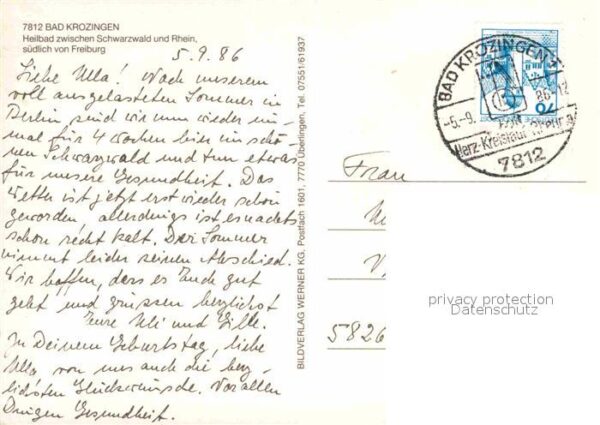 7812 BAD KROZINGEN
Heilbad zwischen Schwarzwald und Rhein,
südlich von Freiburg
5.9.86
Liebe Ulla! Nach unserem
voll ausgelasteten Sommer in
Berlin sind wir nun wieder ein-
mal für 4 Wochen hier im schö-
nen Schwarzwald und tun etwas
für unsere Gesundheit. Das
Wetter ist jetzt erst wieder schön
geworden, allerdings ist es nachts
schon recht kalt. Der Sommer
nimmt leider seinen Abschied.
Wir hoffen, dass es Euch gut
geht und grüssen herzlichst
Eure Uli und
Zu Deinem Geburtstag, liebe
Ulla von uns auch die herz-
lichsten Glückwünsche. Vor allen
Dingen Gesundheit.
BILDVERLAG WERNER KG, Postfach 1601, 7770 Überlingen, Tel. 07551/61937
BAD KROZINGEN
-5.-9. 86-12
Herz-Kreislauf-Rheuma
7812
Frau
5826
privacy protection
Datenschutz